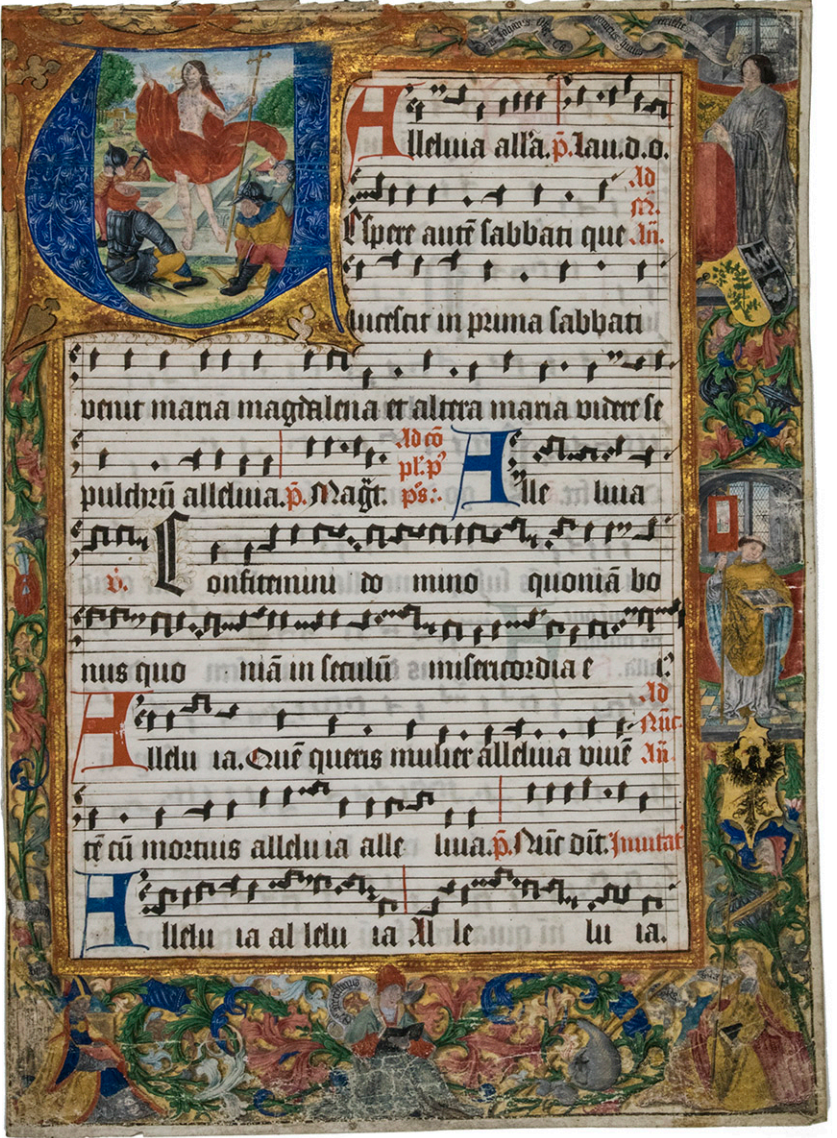 Alleluia all'a. p̄. Lau. d. o.
Ad
Espere aute᷃ sabbati que An̄.
lucescit in prima sabbati
venit maria magdalena et altera maria videre se
pulchrū alleluia. p̄. Magt̄. Ad cō pl'. p' ps: Alle luia
v̄. Confitemini do mino quoniā bo
nus quo niā in seculū misericordia e
Ad
Allelu ia. Quē queris mulier alleluia viuē Nūc An̄.
tē cū mortuis allelu ia alle luia. p̄. Nūc dūt. Inuitat'
Allelu ia al lelu ia Al le lu ia.